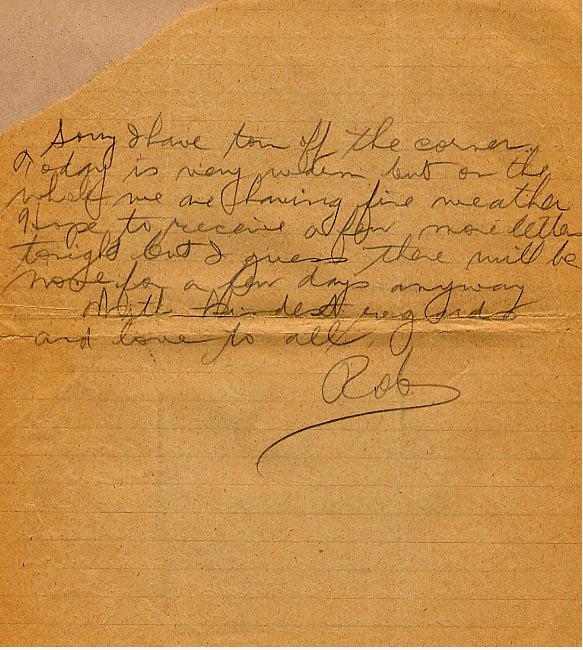 Sorry I have torn off the corner.
Today is very warm but on the
whole we are having fine weather
Hope to receive a few more letters
tonight but I guess there will be
none for a few days anyway
With kindest regards
and love to all,
Rob